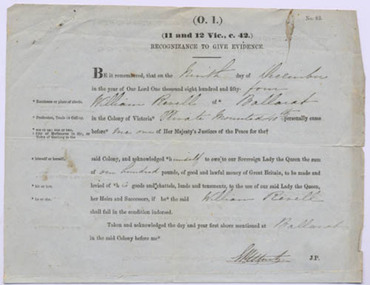 No. 65
(O. 1.)
(11 and 12 Vic., c. 42.)
RECOGNIZANCE TO GIVE EVIDENCE.
BE it remembered, that on the Ninth day of December
in the year of Our Lord One thousand eight hundred and fifty four
William Revell of Ballarat
in the Colony of Victoria Private Mounted personally came
before me one of Her Majesty's Justices of the Peace for the
said Colony, and acknowledged himself to owe to our Sovereign Lady the Queen the sum
of one hundred pounds, of good and lawful money of Great Britain, to be made and
levied of his goods and chattels, lands and tenements, to the use of our said Lady the Queen,
her Heirs and Successors, if he the said William Revell
shall fail in the condition indorsed.
Taken and acknowledged the day and year first above mentioned at Ballarat
in the said Colony before me
J.P.